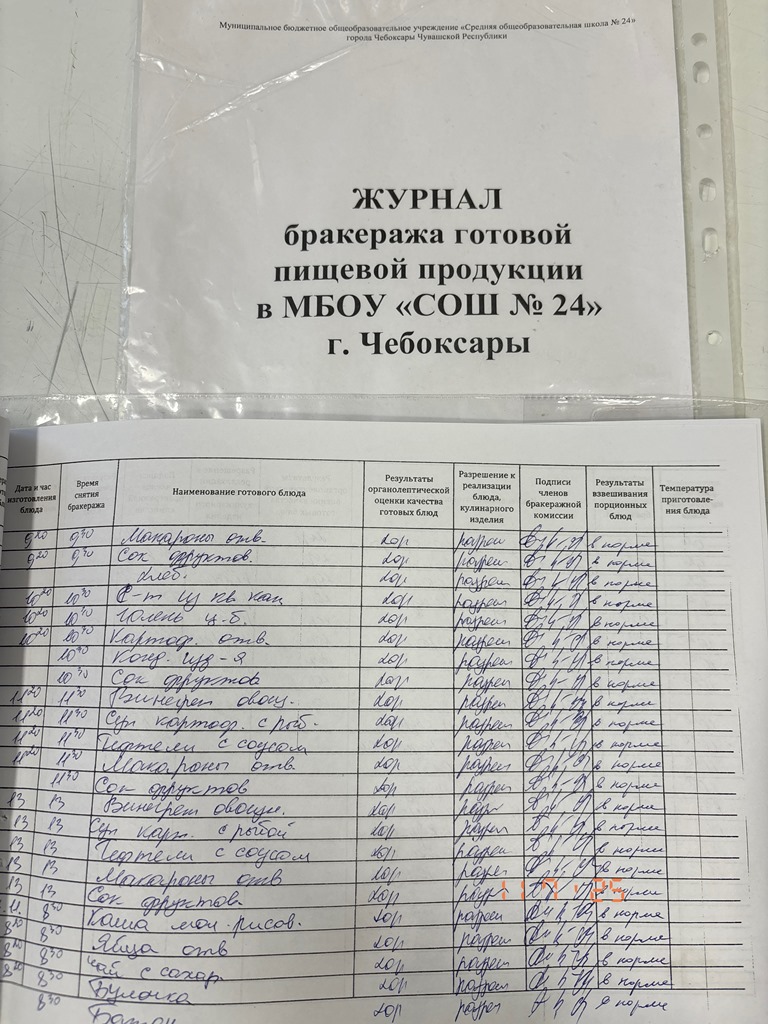 Муниципальное бюджетное общеобразовательное учреждение «Средняя общеобразовательная школа № 24»
города Чебоксары Чувашской Республики
ЖУРНАЛ
бракеража готовой
пищевой продукции
в МБОУ «СОШ № 24»
г. Чебоксары
Дата и час изготовления блюда Время снятия бракеража Наименование готового блюда Результаты органолептической оценки качества готовых блюд Разрешение к реализации блюда, кулинарного изделия Подписи членов бракеражной комиссии Результаты взвешивания порционных блюд Температура приготовле-ния блюда
9 20 9 30 Макароны отв. хор разреш в норме
9 20 9 30 Сок фруктов. хор разреш в норме
Хлеб. хор разреш в норме
10 20 10 30 С-т из кв кап хор разреш в норме
10 20 10 30 Голень ц.б. хор разреш в норме
10 20 10 30 Картоф. отв. хор разреш в норме
10 30 Конд. изд-я хор разреш в норме
10 30 Сок фруктов хор разреш в норме
11 20 11 30 Винегрет овощ. хор разреш в норме
11 20 11 30 Суп картоф. с рыб. хор разреш в норме
11 20 11 30 Тефтели с соусом хор разреш в норме
11 20 11 30 Макароны отв. хор разреш в норме
11 30 Сок фруктов хор разреш в норме
13 13 Винегрет овощн. хор разр в норме
13 13 Суп карт. с рыбой хор разреш в норме
13 13 Тефтели с соусом хор разреш в норме
13 13 Макароны отв хор разреш в норме
13 13 Сок фруктов. хор в норме
11 7 '25
8 30 Каша мол. рисов. хор разреш в норме
8 20 8 30 Яйца отв хор разреш в норме
8 20 8 30 Чай с сахар хор разреш в норме
8 30 Булочка хор разреш в норме
8 30 Батон хор разреш в норме